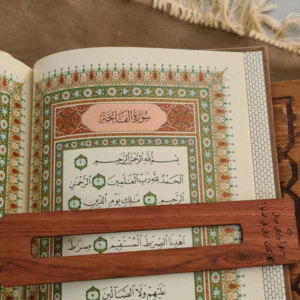 سُورَةُ الْفَاتِحَةِ
بِسْمِ اللَّهِ الرَّحْمَٰنِ الرَّحِيمِ
الْحَمْدُ لِلَّهِ رَبِّ الْعَالَمِينَ الرَّحْمَٰنِ
الرَّحِيمِ مَالِكِ يَوْمِ الدِّينِ
اهْدِنَا الصِّرَاطَ الْمُسْتَقِيمَ صِرَاطَ
عَلَيْهِمْ وَلَا الضَّالِّينَ